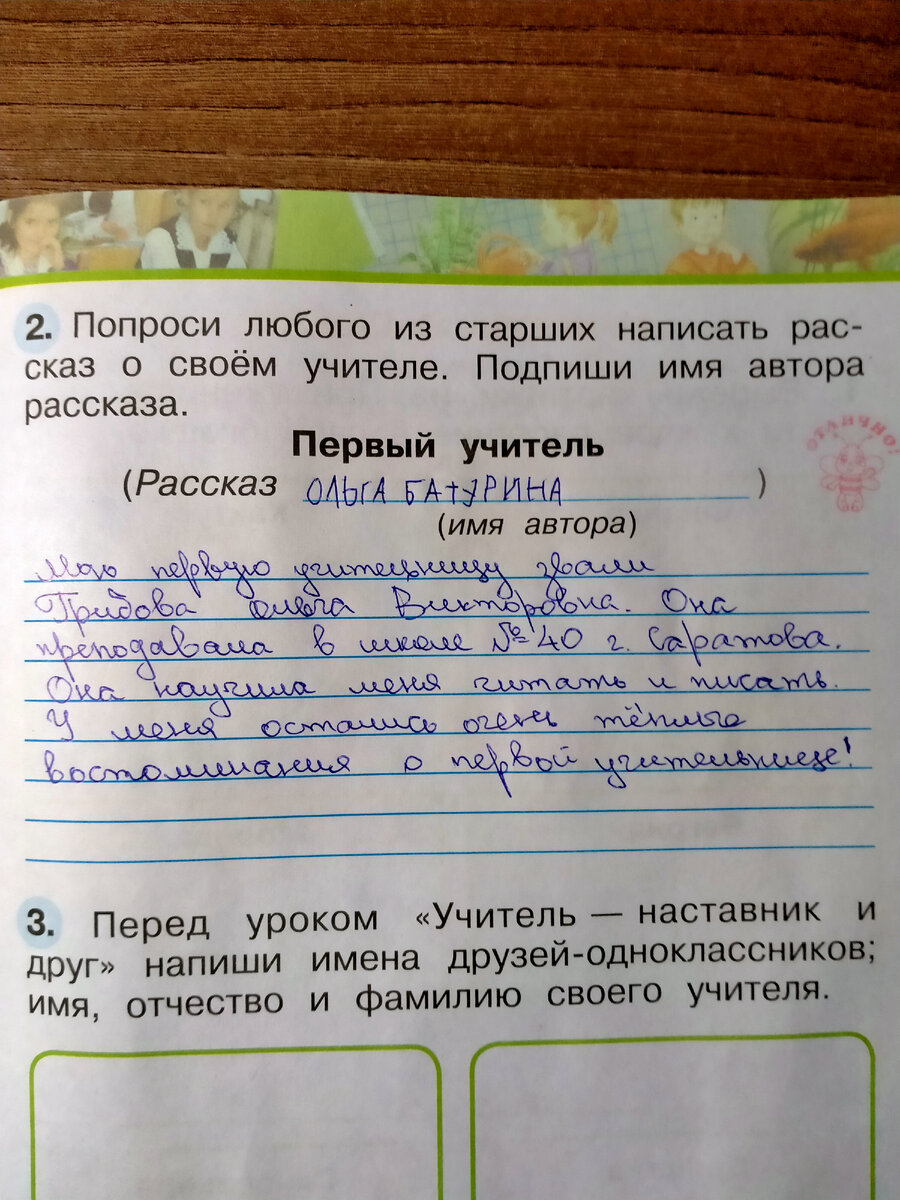 2. Попроси любого из старших написать рас-
сказ о своём учителе. Подпиши имя автора
рассказа.
ОТЛИЧНО!
Первый учитель
(Рассказ ОЛЬГА БАТУРИНА)
(имя автора)
Мою первую учительницу звали
Грибова Ольга Викторовна. Она
преподавала в школе №40 г. Саратова.
Она научила меня читать и писать.
У меня остались очень тёплые
воспоминания о первой учительнице!
3. Перед уроком «Учитель — наставник и
друг» напиши имена друзей-одноклассников;
имя, отчество и фамилию своего учителя.